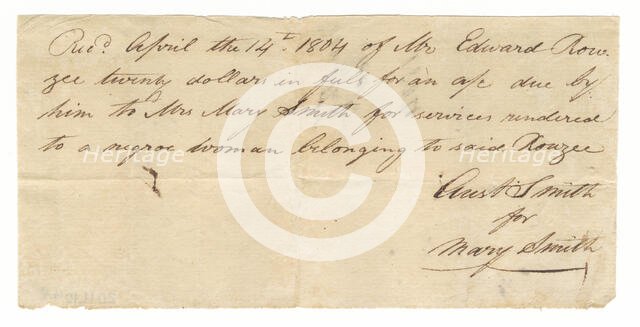 Rec.d April the 14t. 1804 of Mr Edward Row-
zee twenty dollars in full for an a/c due by
him to Mrs Mary Smith for services rendered
to a negroe woman belonging to said Rowzee
Aust Smith
for
Mary Smith
Heritage Heritage
Heritage Heritage